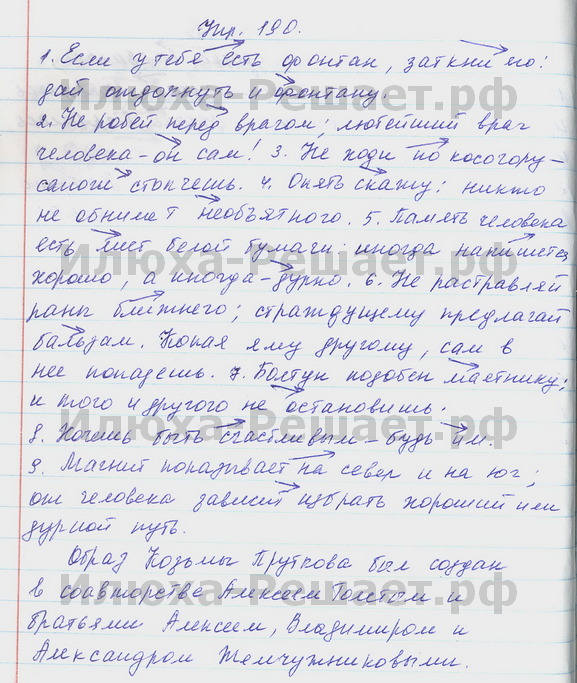 Упр. 190.
1. Если у тебя есть фонтан, заткни его:
дай отдохнуть и фонтану.
2. Не робей перед врагом; лютейший враг
человека - он сам! 3. Не ходи по косогору -
сапоги стопчешь. 4. Опять скажу: никто
не обнимет необъятного. 5. Память человека
есть лист белой бумаги: иногда напишется
хорошо, а иногда - дурно. 6. Не растравляй
раны ближнего; страждущему предлагай
бальзам. Копая яму другому, сам в
нее попадешь. 7. Болтун подобен маятнику;
и того и другого не остановишь.
8. Хочешь быть счастливым - будь им.
9. Магнит показывает на север и на юг;
от человека зависит избрать хороший или
дурной путь.
Образ Козьмы Пруткова был создан
в соавторстве Алексеем Толстым и
братьями Алексеем, Владимиром и
Александром Жемчужниковыми.
Илюха-Решает.рф
Илюха-Решает.рф
Илюха-Решает.рф
Илюха-Решает.рф
Илюха-Решает.рф
Илюха-Решает.рф